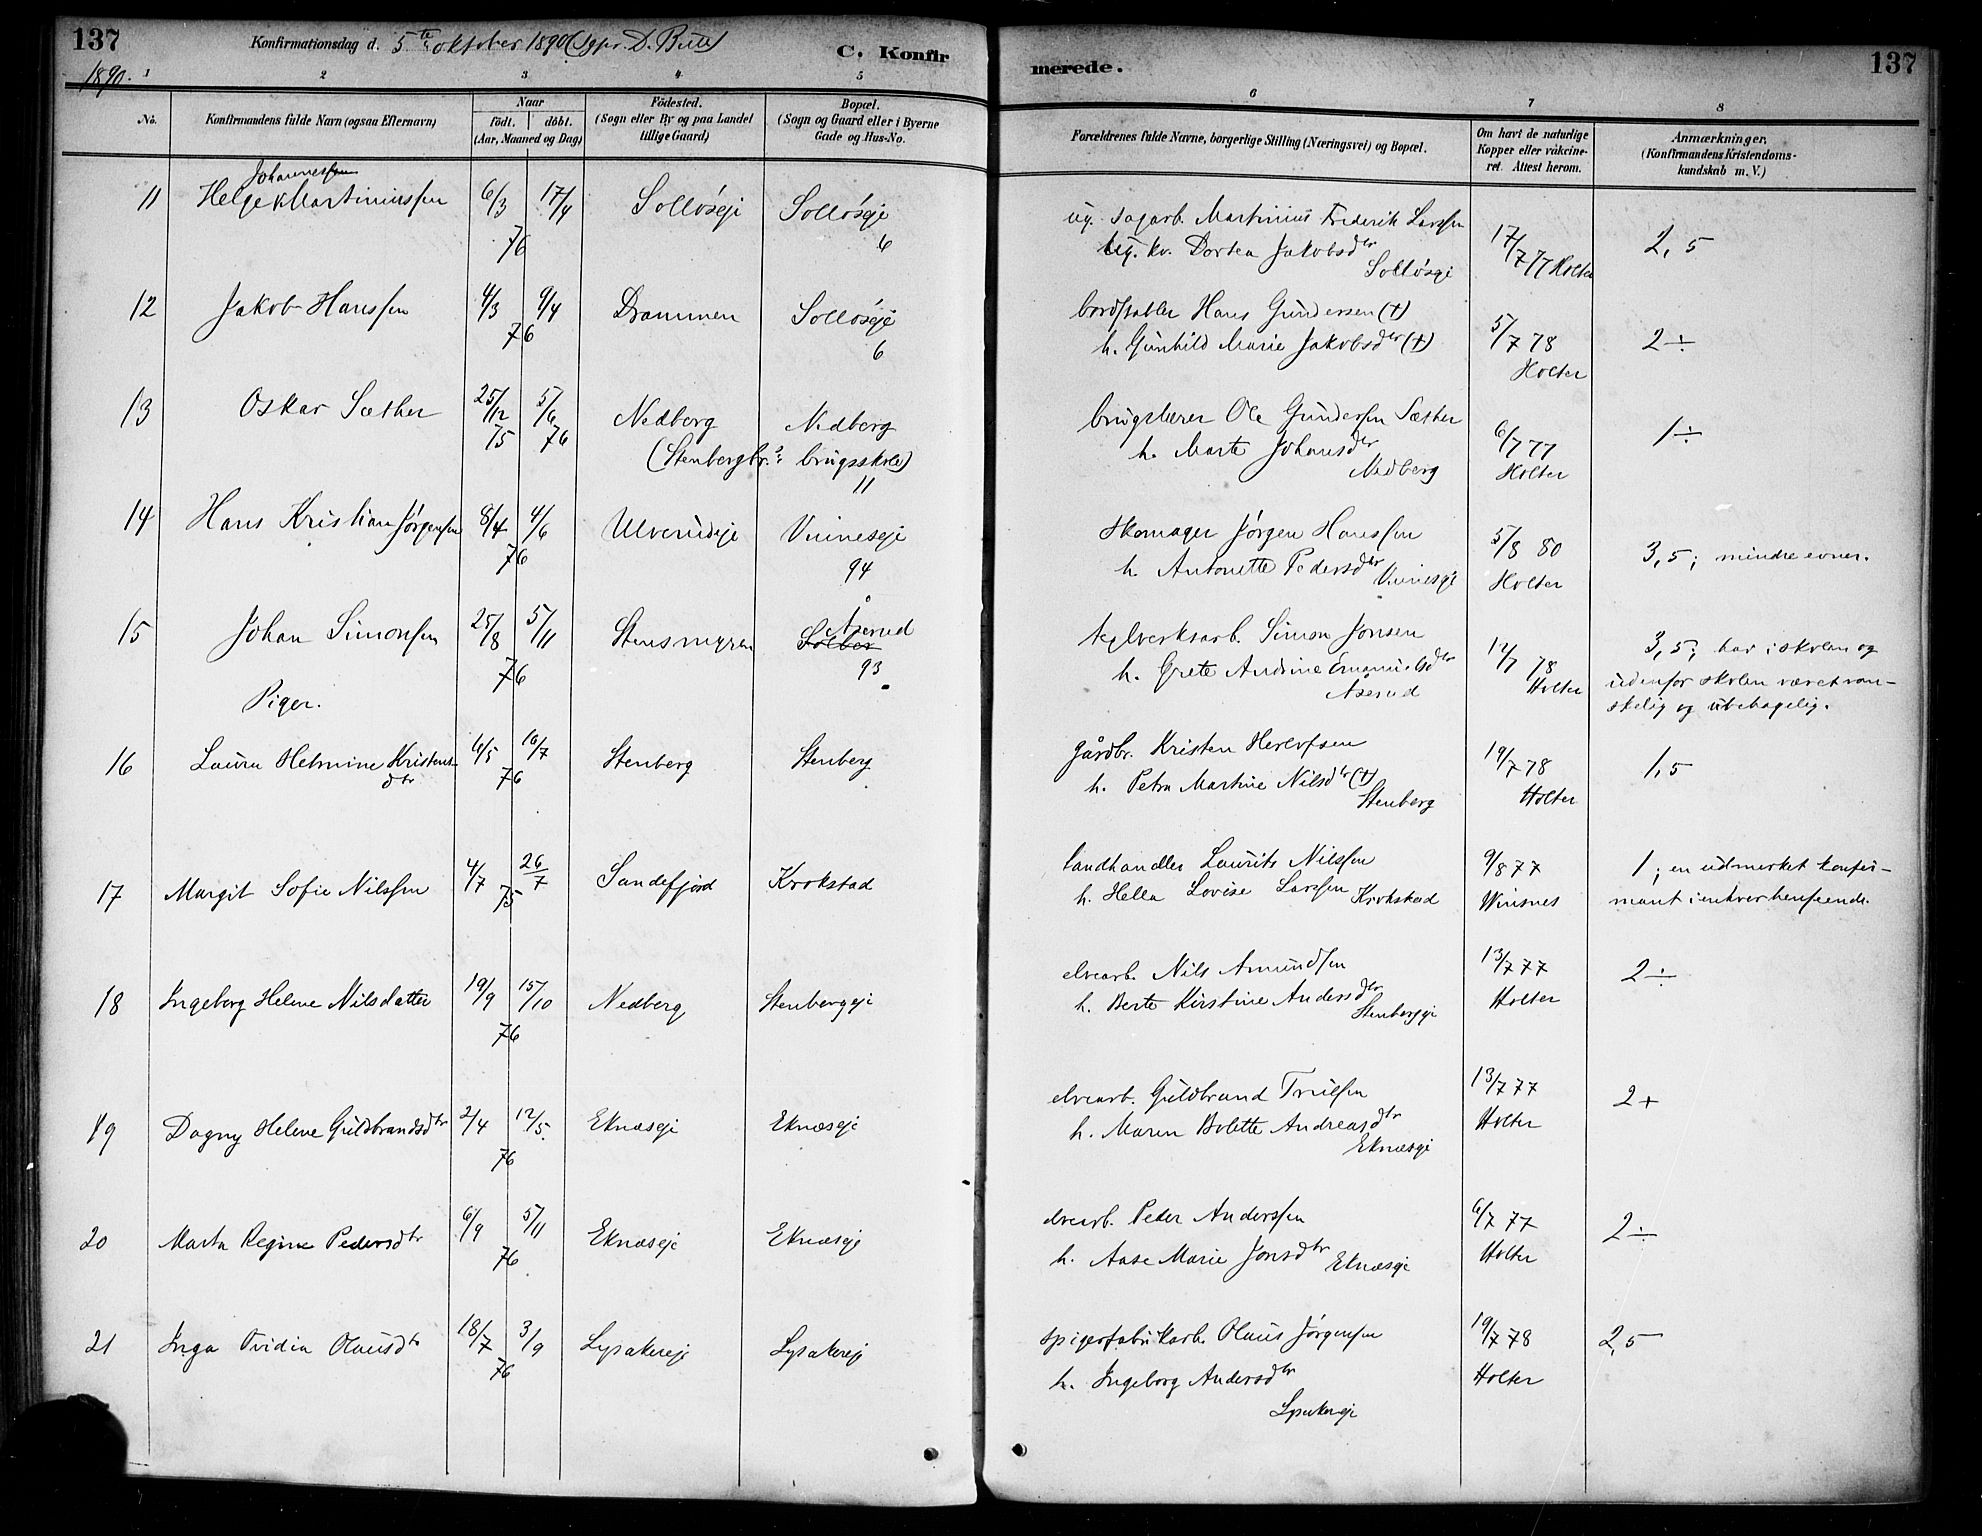 137
Konfirmationsdag d. 5te oktober 1890
C. Konfir
merede.
137
1890.
1 2 3 4 5 6 7 8
No.
Konfirmandens fulde Navn (ogsaa Efternavn)
Naar
födt. döbt.
(Aar, Maaned og Dag)
Födested.
(Sogn eller By og paa Landet
tillige Gaard)
Bopæl.
(Sogn og Gaard eller i Byerne
Gade og Hus-No.
Forældrenes fulde Navne, borgerlige Stilling (Næringsvei) og Bopæl.
Om havt de naturlige
Kopper eller vakcine-
ret. Attest herom.
Anmærkninger.
(Konfirmandens Kristendoms-
kundskab m. V.)
Johannessen
11 Helge Martiniussen 6/3 17/4 Solløseje Solløseje
76 6
ug. sagarb. Martinius Frederik Larssen
ug. kv. Dortea Jakobsdtr
Solløseje
17/7 77 Holter
2,5
12 Jakob Hanssen 4/3 9/4 Drammen Solløseje
76 6
bordstabler Hans Gundersen (†)
h. Gunhild Marie Jakobsdtr (†)
5/7 78
Holter
2÷
13 Oskar Sæther 25/12 5/6 Nedberg Nedberg
75 76 (Stenbergbr. brugsskole)
11
brugslærer Ole Gundersen Sæther
h. Marte Johansdtr
Nedberg
6/7 77
Holter
1÷
14 Hans Kristian Jørgensen 8/4 4/6 Ulverudeje Vinneseje
76 94
skomager Jørgen Hanssen
h. Antonette Pedersdtr Vinneseje
5/8 80
Holter
3,5; mindre evner.
15 Johan Simonsen 25/8 5/11 Stensmyren Åserud
76 93
teglverksarb. Simon Jonsen
h. Grete Andrine Emanuelsdtr
Åserud
12/7 78
Holter
3,5; har i skolen og
udenfor skolen været van-
skelig og ubehagelig.
Piger.
16 Laura Helmine Kristens- 6/5 16/7 Stenberg Stenberg
dtr 76
gårdbr. Kristen Herlofsen
h. Petra Martine Nilsdtr (†)
Stenberg
19/7 78
Holter
1,5
17 Margit Sofie Nilssen 4/7 26/7 Sandefjord Krokstad
75
landhandler Laurits Nilssen
h. Hella Lovise Larssen Krokstad
9/8 77
Winsnes
1; en udmerket konfir-
mant i enhver henseende.
18 Ingeborg Helene Nilsdatter 19/9 15/10 Nedberg Stenbergeje
76
elvearb. Nils Amundsen
h. Berte Kirstine Andersdtr
Stenbergeje
13/7 77
Holter
2÷
19 Dagny Helene Guldbrandsdtr 2/4 12/5. Eknæseje Eknæseje
76
elvearb. Guldbrand Truelsen
h. Maren Bolette Andreasdtr
Eknæseje
13/7 77
Holter
2+
20 Marta Regine Pedersdtr 6/9 5/11 Eknæseje Eknæseje
76
elvearb. Peder Anderssen
h. Aase Marie Jonsdtr Eknæseje
6/7 77
Holter
2÷
21 Inga Ovidia Olausdtr 18/7 3/9 Lysakereje Lysakereje
76
spigerfabrikarb. Olaus Jørgensen
h. Ingeborg Andersdtr
Lysakereje
19/7 78
Holter
2,5